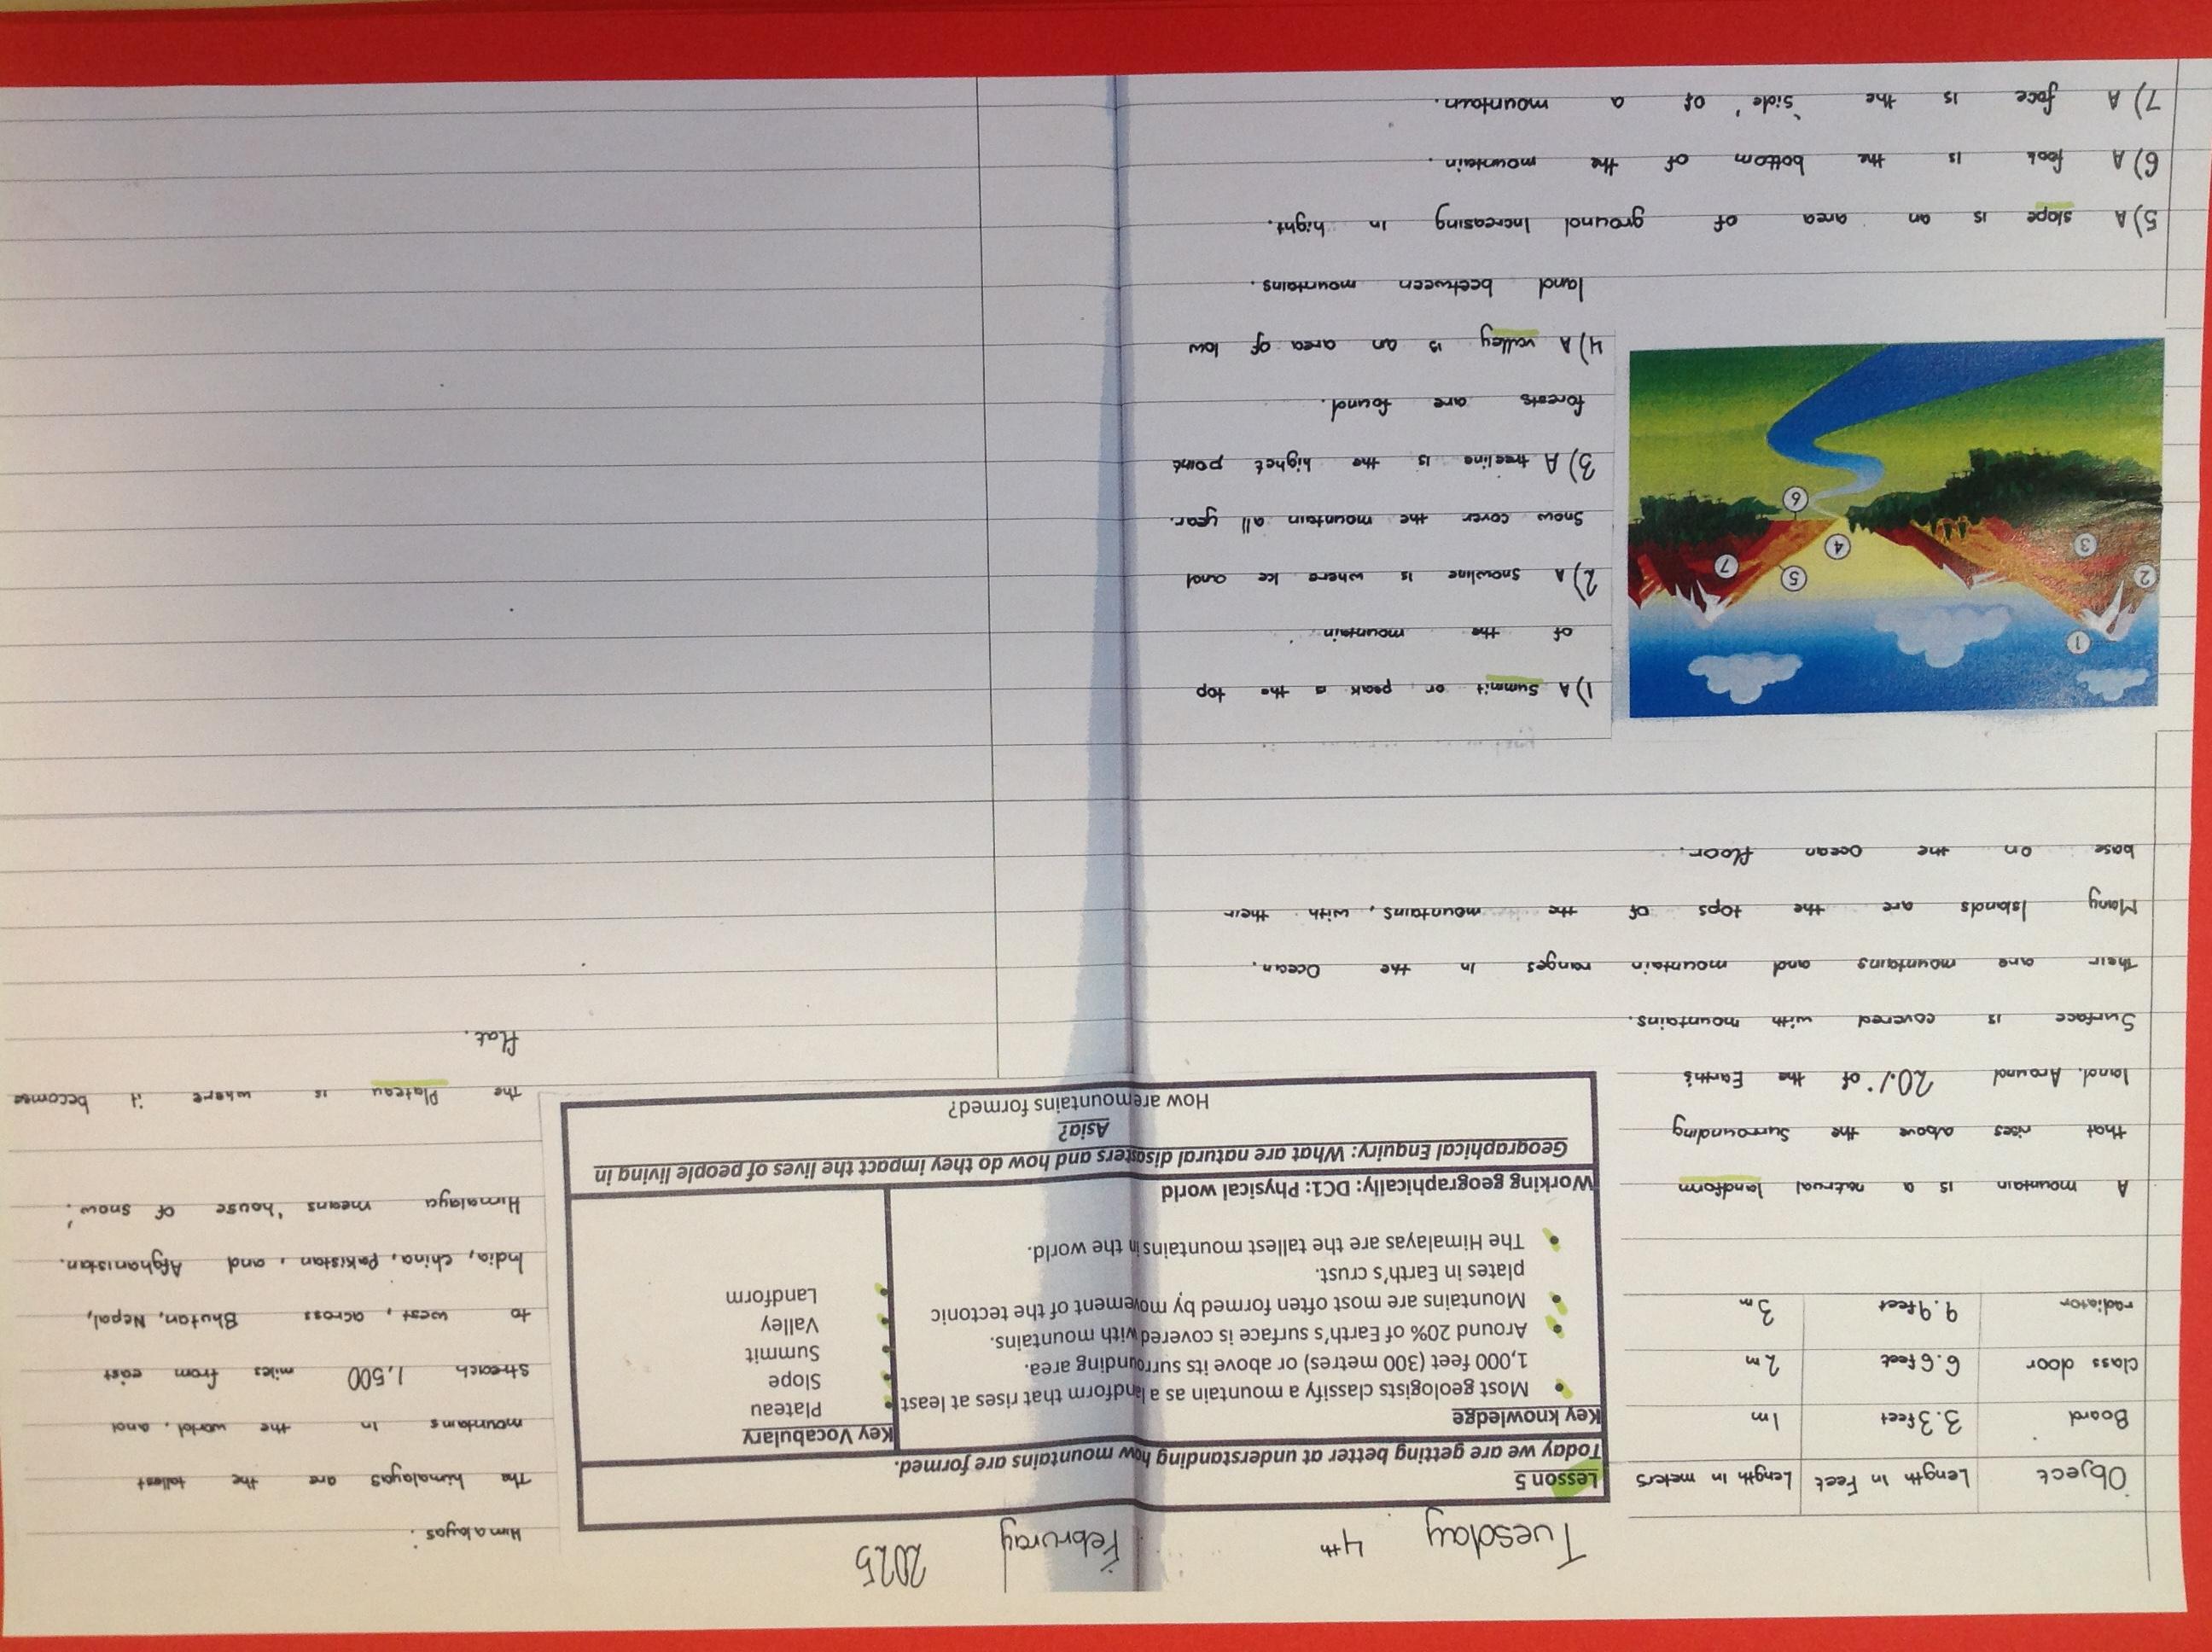 Tuesday 4th Februray 2025
Object Length In Feet Length In meters
Board 3.3feet 1m
class door 6.6feet 2m
radiator 9.9feet 3m
A mountain is a natrual landform
that rises above the surrounding
land. Around 20% of the Earth's
Surface is covered with mountains.
their are mountains and mountain ranges In the Ocean.
Many Islands are the tops of the mountains, with their
base on the Ocean floor.
Lesson 5
Today we are getting better at understanding how mountains are formed.
Key knowledge
Most geologists classify a mountain as a landform that rises at least
1,000 feet (300 metres) or above its surrounding area.
Around 20% of Earth's surface is covered with mountains.
Mountains are most often formed by movement of the tectonic
plates in Earth's crust.
The Himalayas are the tallest mountains in the world.
Key Vocabulary
Plateau
Slope
Summit
Valley
Landform
Working geographically: DC1: Physical world
Geographical Enquiry: What are natural disasters and how do they impact the lives of people living in
Asia?
How aremountains formed?
1
2
3
4
5
6
7
1) A Summit or peak is the top
of the mountain.
2) A snowline is where Ice and
Snow cover the mountain all year.
3) A treeline is the highet point
forests are found.
4) A valley is an area of low
land beetween mountains.
5) A slope is an area of ground Increasing in hight.
6) A foot is the bottom of the mountain.
7) A face is the 'side' of a mountain.
Himalayas.
The himalayas are the tallest
mountains In the world, and
streach 1,500 miles from east
to west, across Bhutan, Nepal,
India, china, Pakistan, and Afghanistan.
Himalaya means 'house of snow.'
the Plateau is where it becomse
flat.